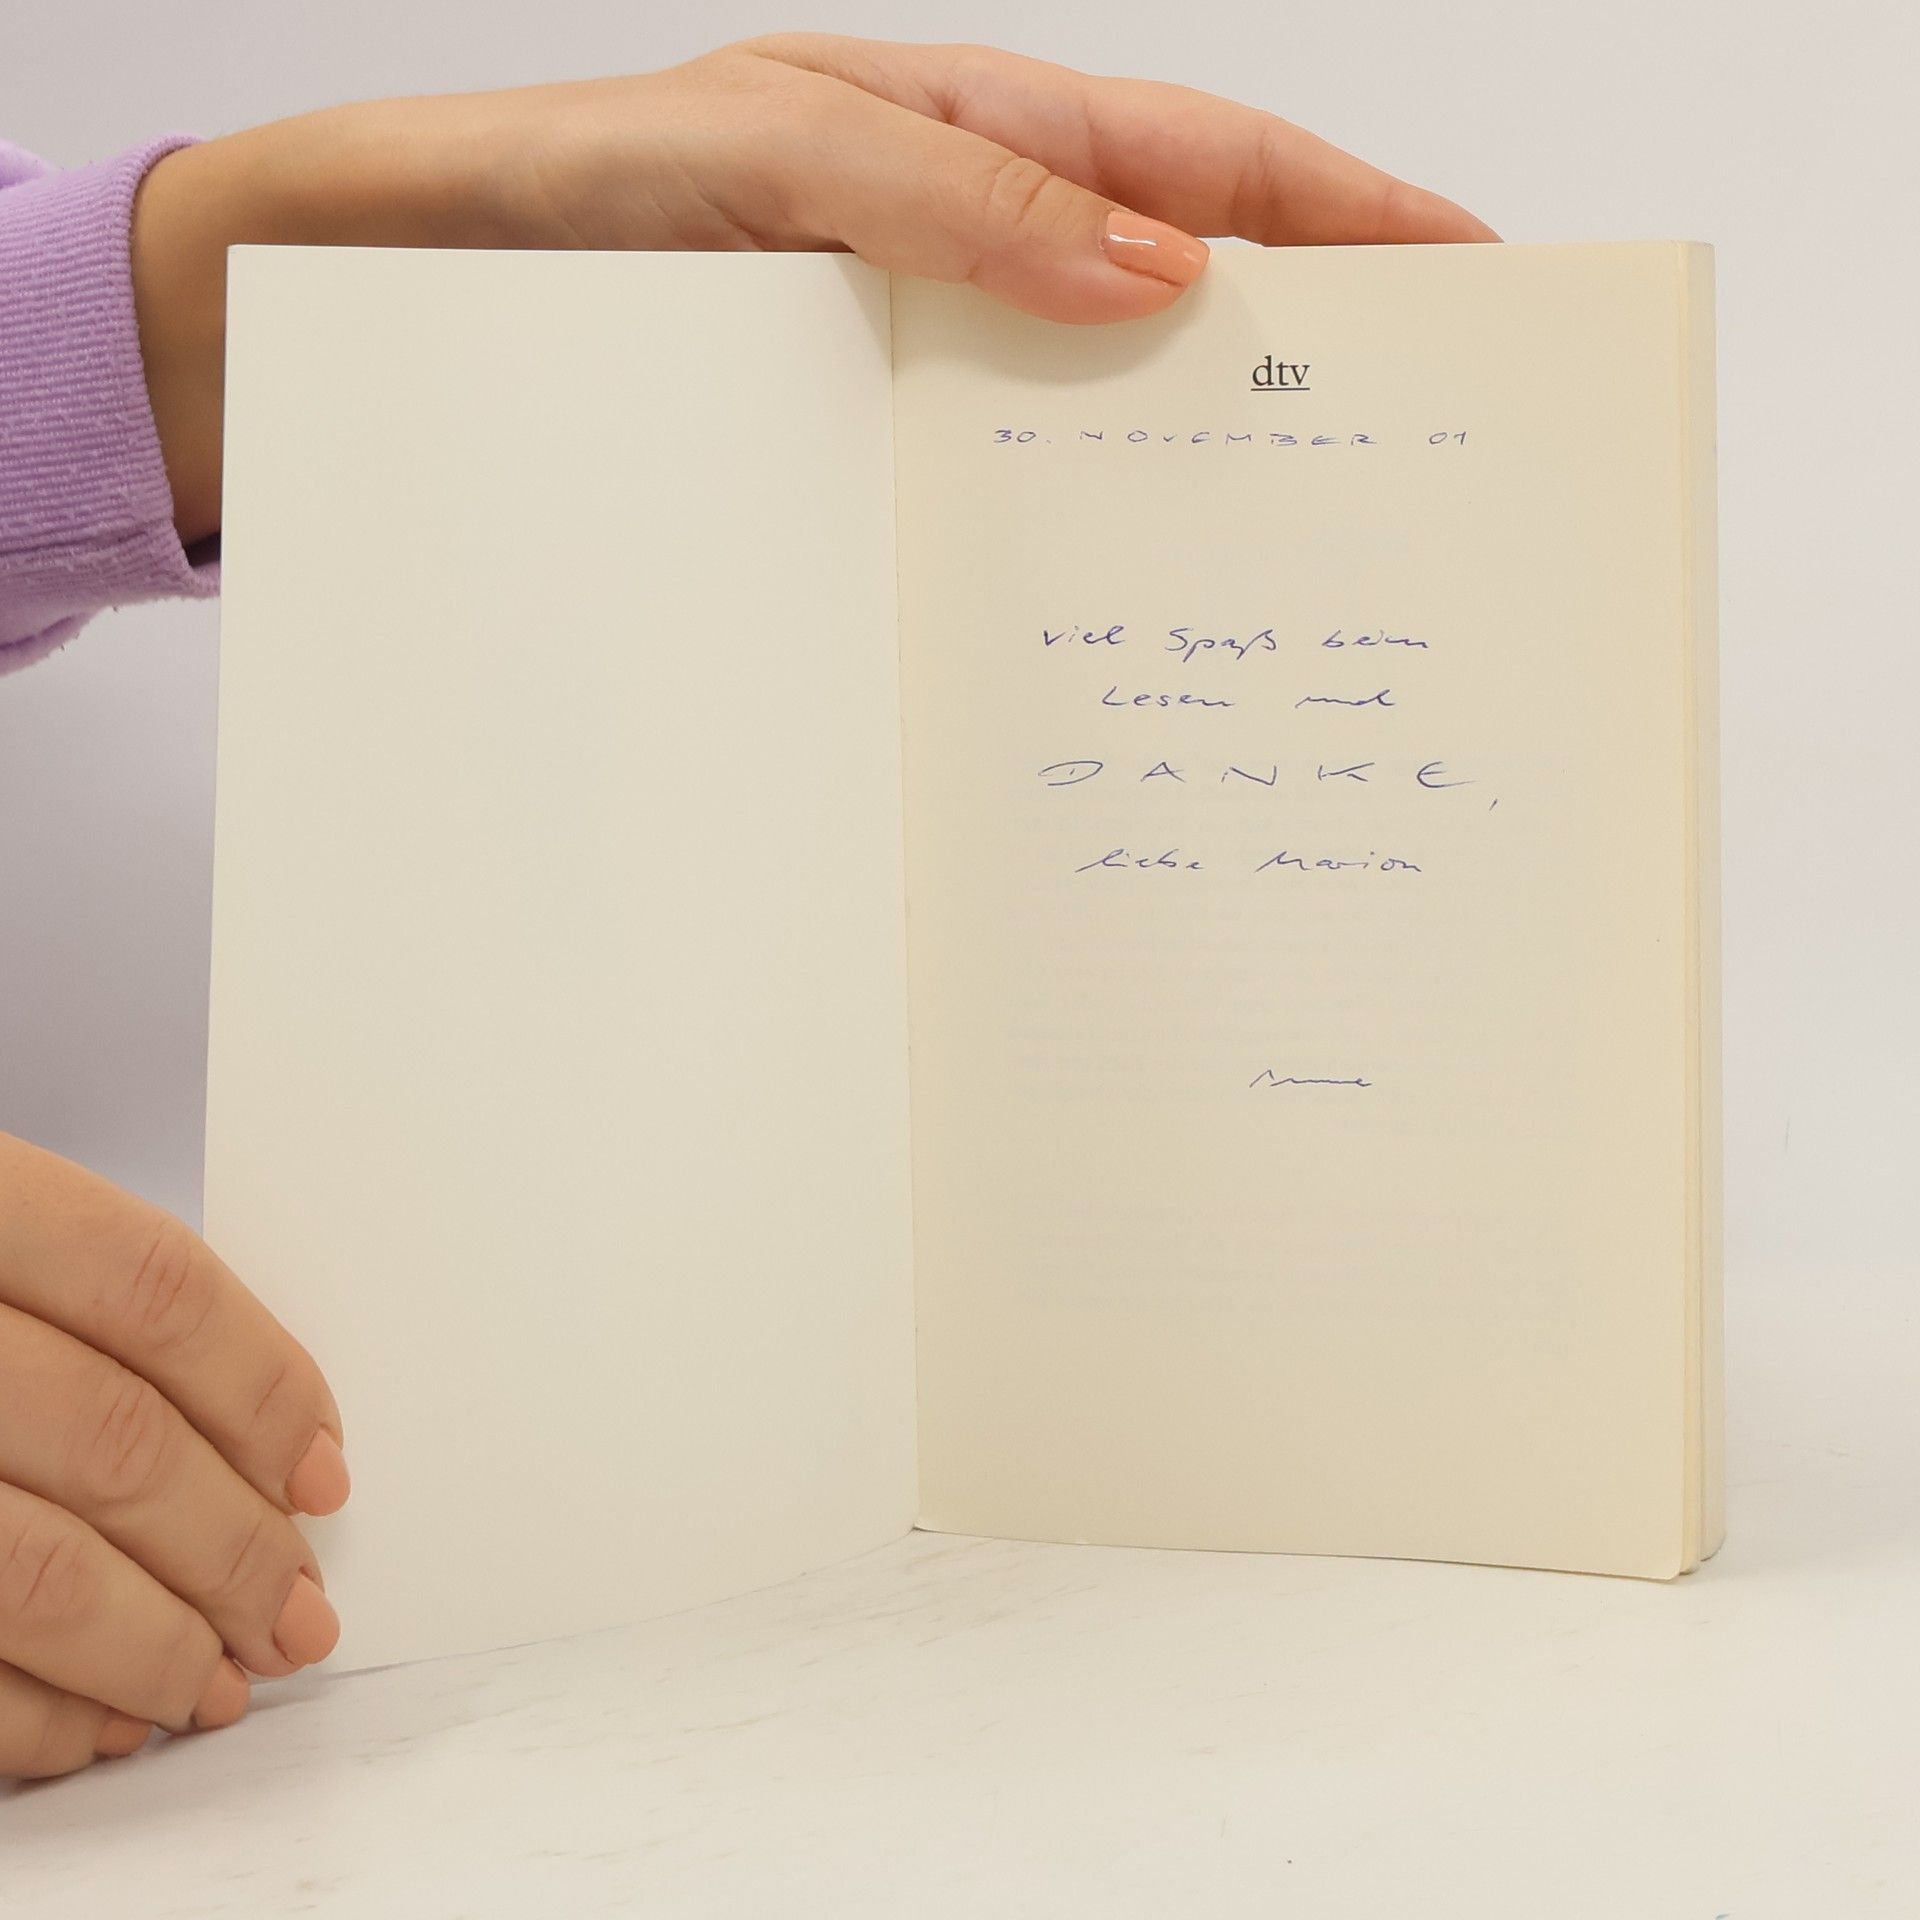 dtv
30. NOVEMBER 01
viel Spaß beim
Lesen und
DANKE,
liebe Marion
Anne